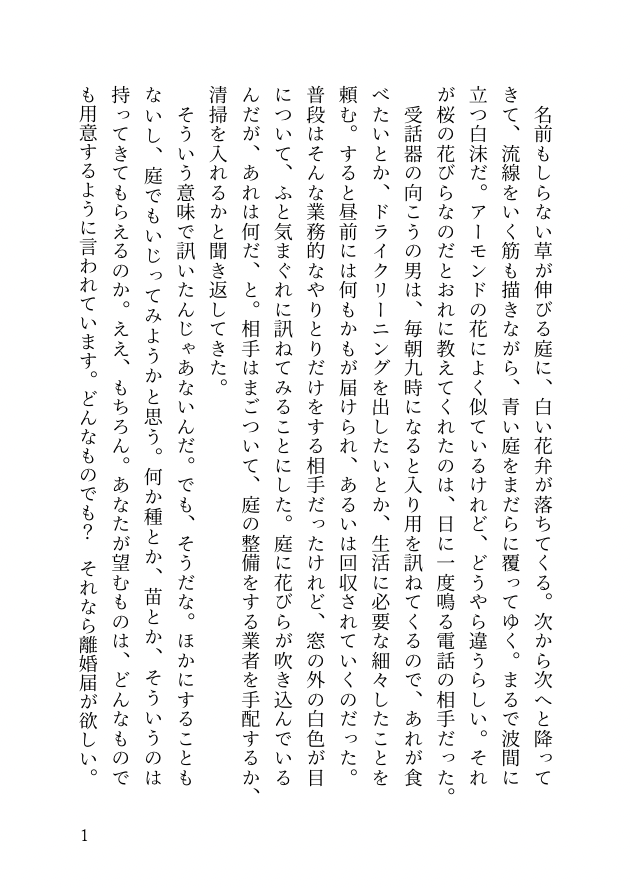 名前もしらない草が伸びる庭に、白い花弁が落ちてくる。次から次へと降って
きて、流線をいく筋も描きながら、青い庭をまだらに覆ってゆく。まるで波間に
立つ白沫だ。アーモンドの花によく似ているけれど、どうやら違うらしい。それ
が桜の花びらなのだとおれに教えてくれたのは、日に一度鳴る電話の相手だった。
　受話器の向こうの男は、毎朝九時になると入り用を訊ねてくるので、あれが食
べたいとか、ドライクリーニングを出したいとか、生活に必要な細々したことを
頼む。すると昼前には何もかもが届けられ、あるいは回収されていくのだった。
普段はそんな業務的なやりとりだけをする相手だったけれど、窓の外の白色が目
について、ふと気まぐれに訊ねてみることにした。庭に花びらが吹き込んでいる
んだが、あれは何だ、と。相手はまごついて、庭の整備をする業者を手配するか、
清掃を入れるかと聞き返してきた。
　そういう意味で訊いたんじゃあないんだ。でも、そうだな。ほかにすることも
ないし、庭でもいじってみようかと思う。何か種とか、苗とか、そういうのは
持ってきてもらえるのか。ええ、もちろん。あなたが望むものは、どんなもので
も用意するように言われています。どんなものでも？　それなら離婚届が欲しい。
1